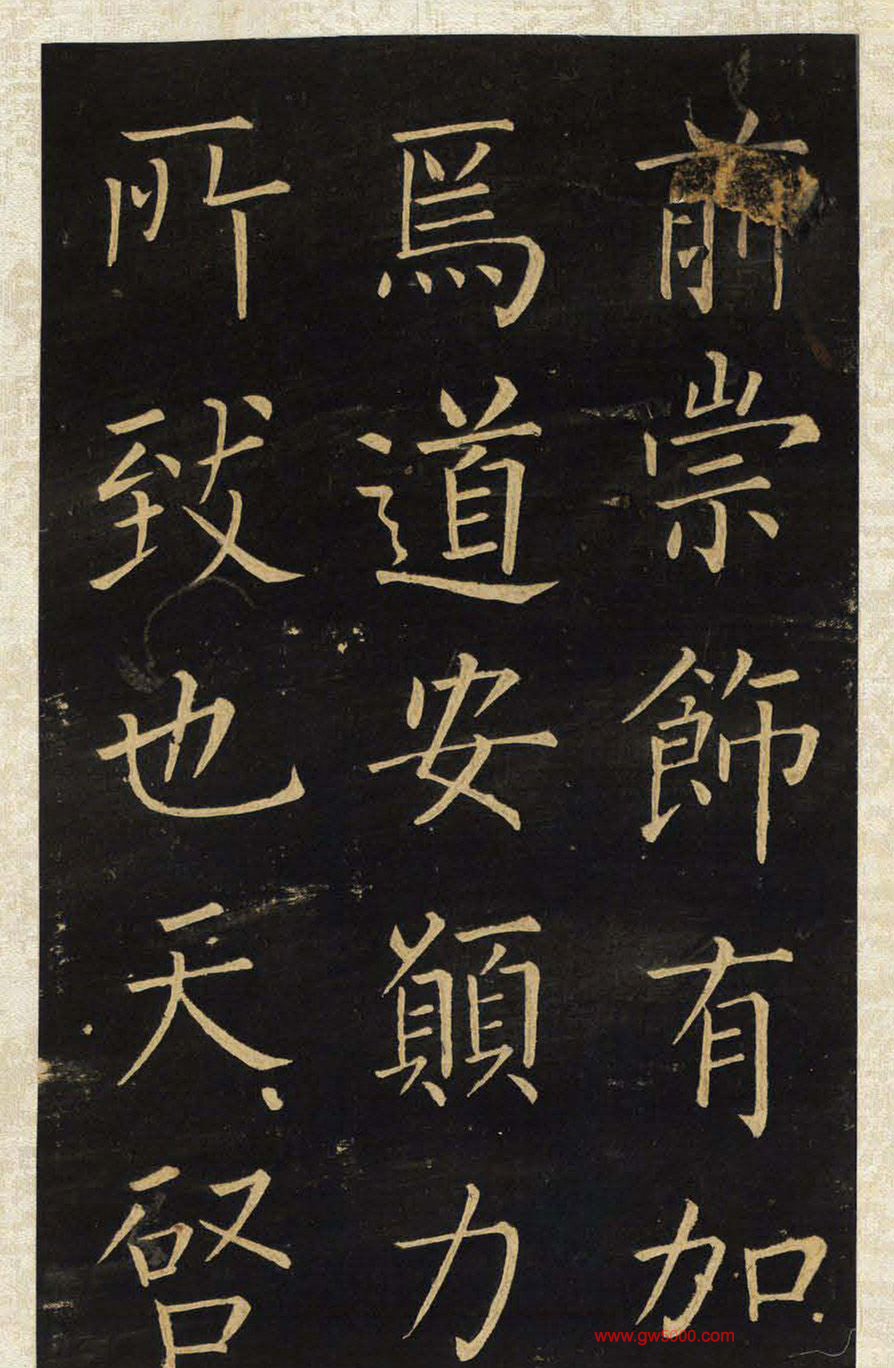 前崇飾有加
焉道安願力
所致也天啓
www.gws000.com